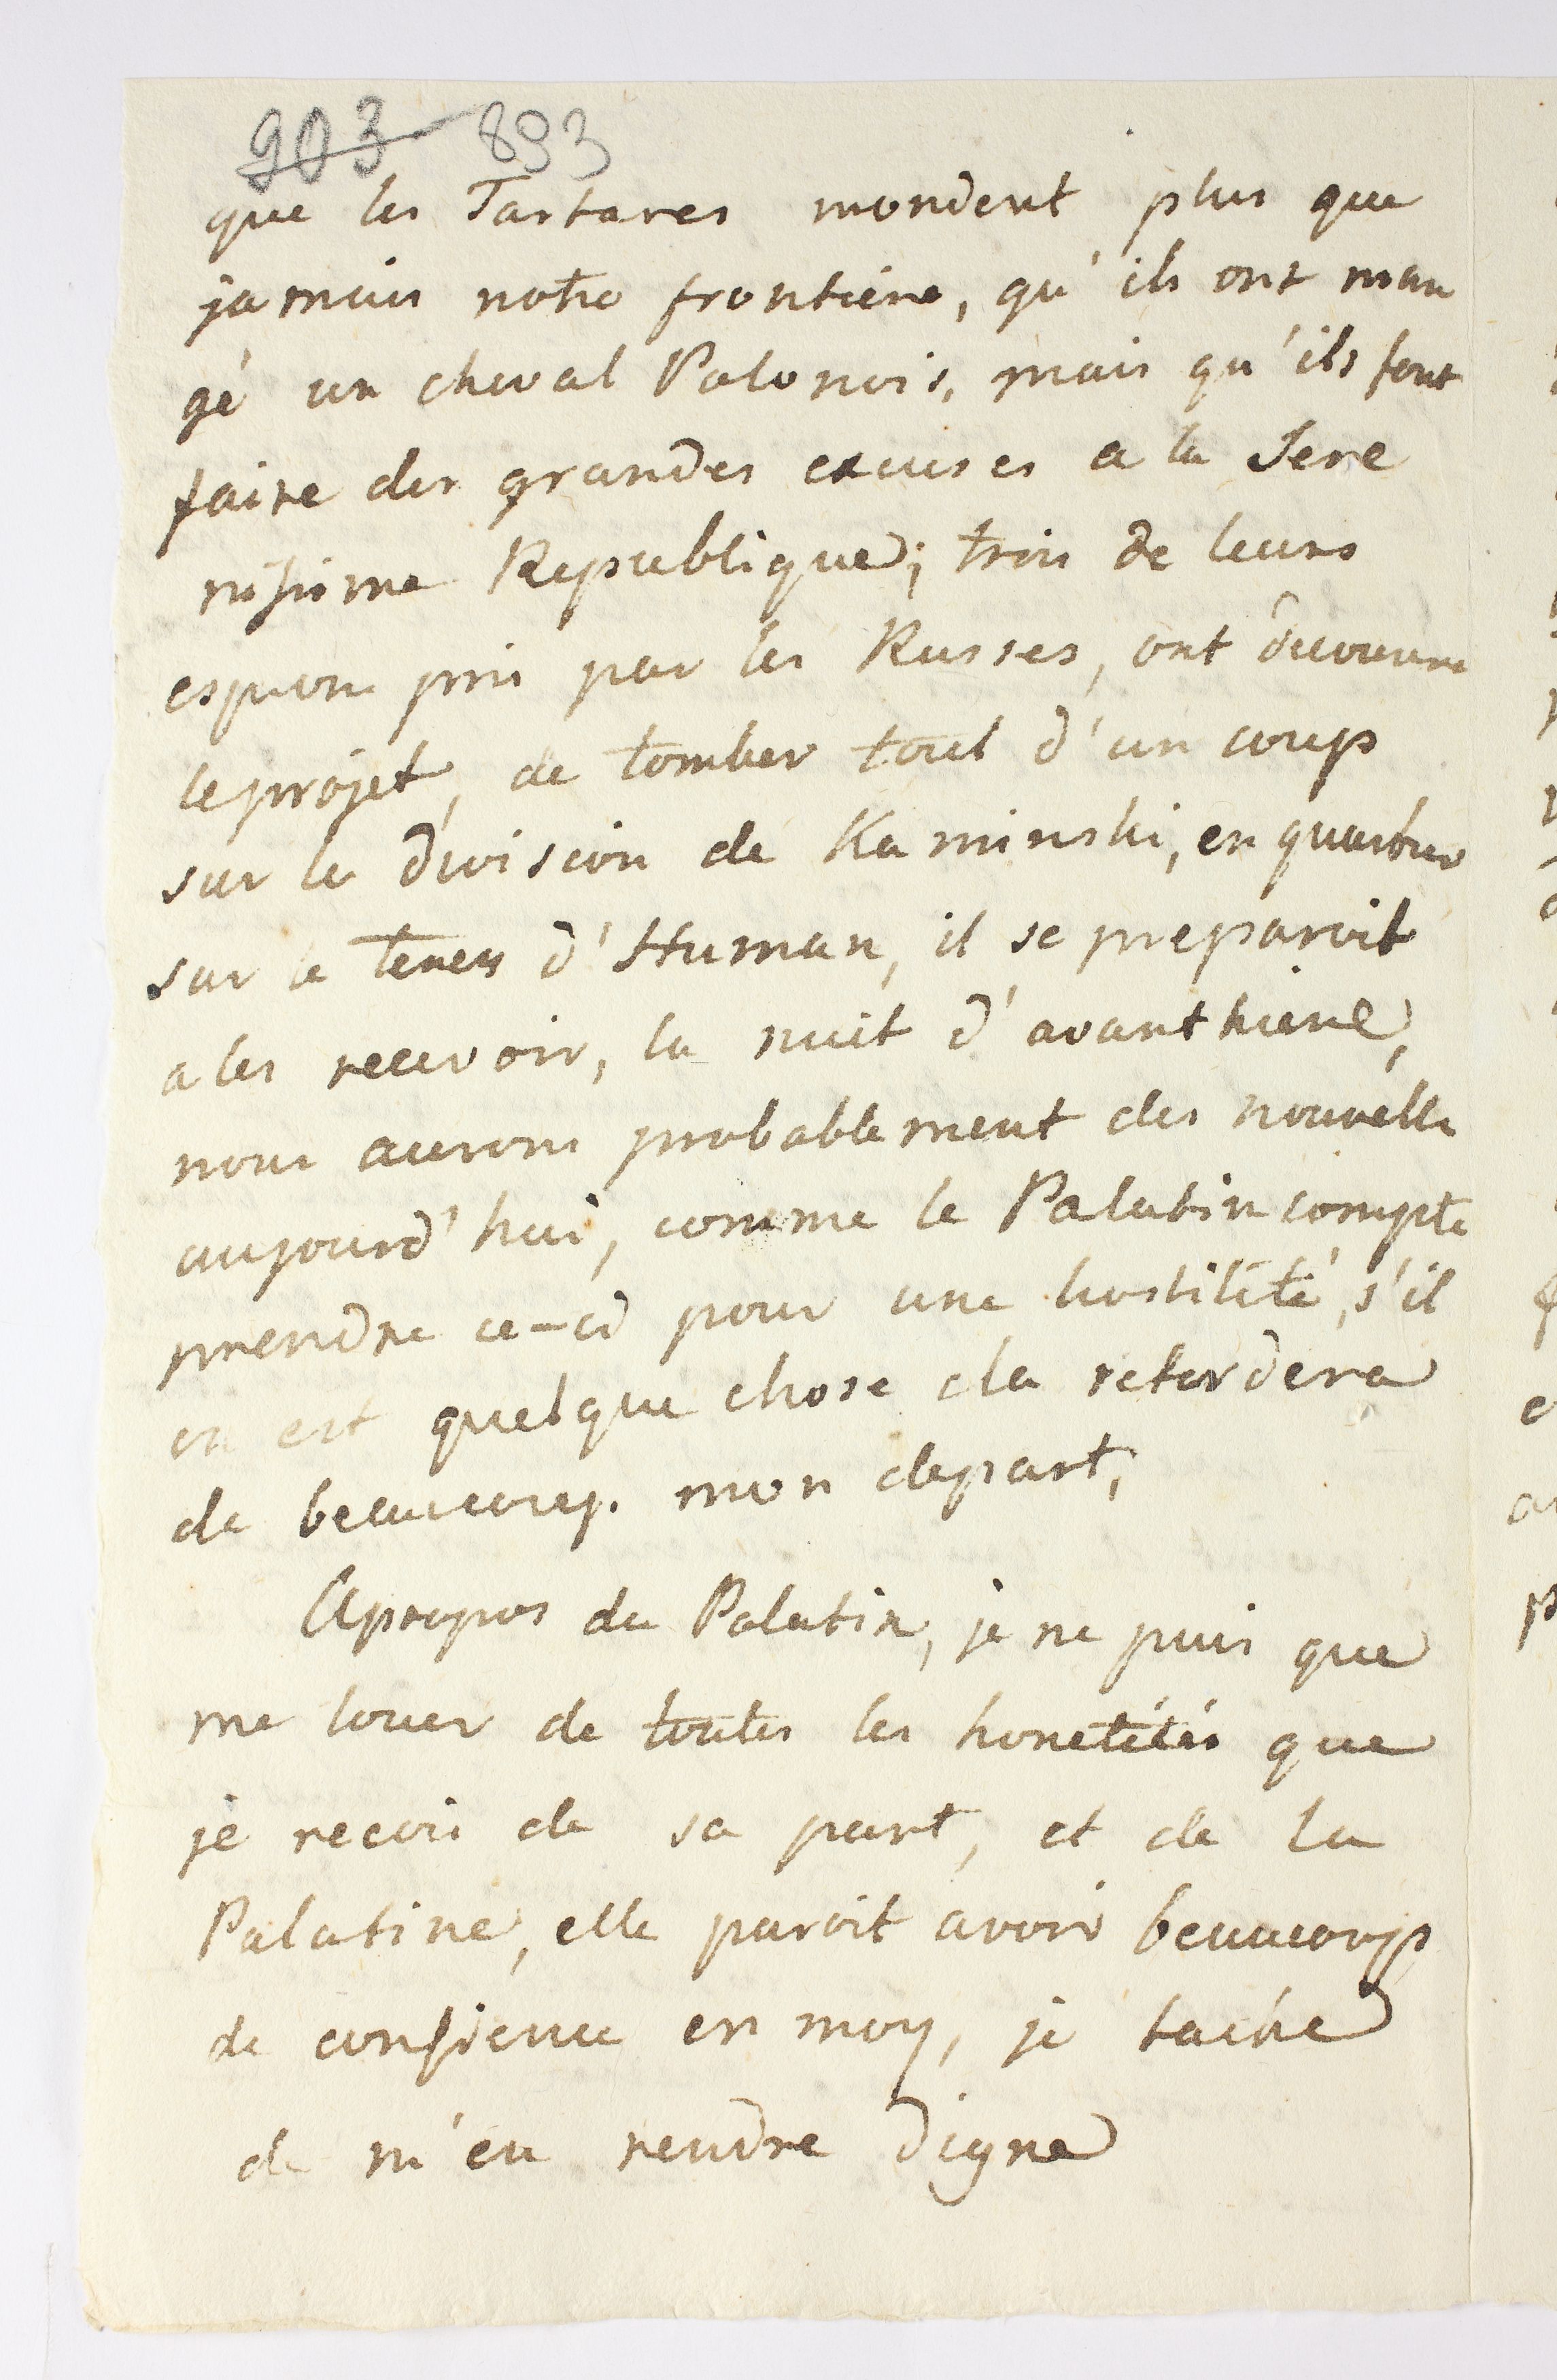 903 893
que les Tartares mondent plus que
jamais notre frontiere, qu'ils ont man
gé un cheval Polonois, mais qu'ils font
faire des grandes excuses a la Sere
nissime Republique; trois de leurs
espions pris par les Russes, ont decouvert
le projet, de tomber tout d'un coup
sur la division de Kaminski, en quartier
sur le terrein d'Human, il se preparoit
a les recevoir, la nuit d'avanthiere,
nous aurons probablement des nouvelle
aujourd'hui, comme le Palatin compte
prendre ce-ci pour une hostilité, s'il
en est quelque chose cela retardera
de beaucoup. mon depart,
Apropos du Palatin, je ne puis que
me louer de toutes les honetétés que
je recois de sa part, et de la
Palatine, elle paroit avoir beaucoup
de confience en moy, je tache
de m'en rendre digne